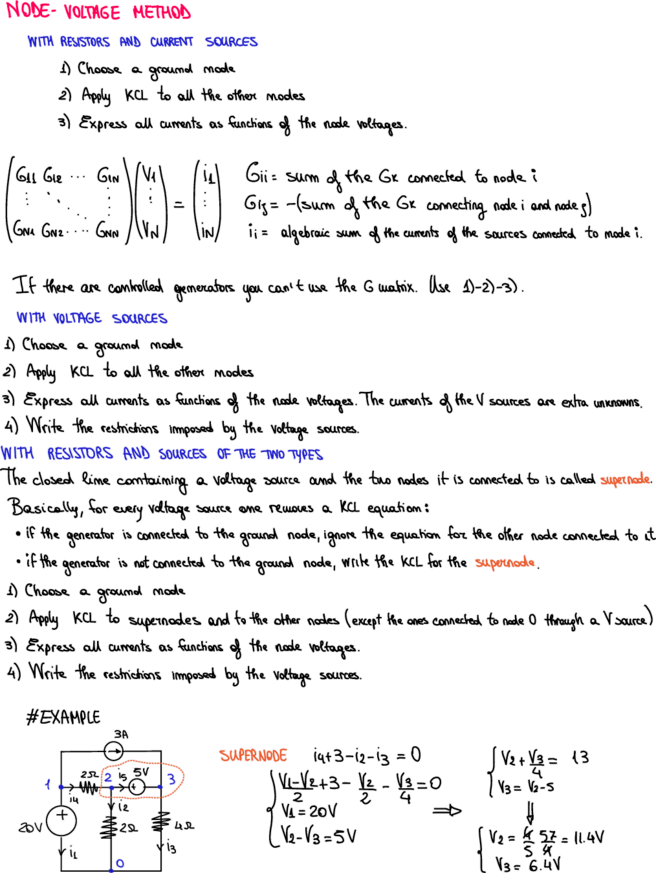 NODE-VOLTAGE METHOD
WITH RESISTORS AND CURRENT SOURCES
1) Choose a ground node
2) Apply KCL to all the other nodes
3) Express all currents as functions of the node voltages.
(G11 G12 ... G1N) (V1) = (i1) Gii = sum of the Gk connected to node i
⋮ ⋱ ⋮ ⋮ ⋮ Gij = -(sum of the Gk connecting node i and node j)
(GN1 GN2 .... GNN) (VN) (iN) ii = algebraic sum of the currents of the sources connected to node i.
If there are controlled generators you can't use the G matrix. Use 1)-2)-3).
WITH VOLTAGE SOURCES
1) Choose a ground node
2) Apply KCL to all the other nodes
3) Express all currents as functions of the node voltages. The currents of the V sources are extra unknowns.
4) Write the restrictions imposed by the voltage sources.
WITH RESISTORS AND SOURCES OF THE TWO TYPES
The closed line containing a voltage source and the two nodes it is connected to is called supernode.
Basically, for every voltage source one removes a KCL equation:
• if the generator is connected to the ground node, ignore the equation for the other node connected to it
• if the generator is not connected to the ground node, write the KCL for the supernode.
1) Choose a ground node
2) Apply KCL to supernodes and to the other nodes (except the ones connected to node 0 through a V source)
3) Express all currents as functions of the node voltages.
4) Write the restrictions imposed by the voltage sources.
#EXAMPLE
3A
1 2Ω 2 i5 5V 3
i4
i2
20V 2Ω 4Ω
i1 i3
0
SUPERNODE i4+3-i2-i3 = 0
(V1-V2)/2+3-V2/2-V3/4=0
V1=20V
V2-V3=5V
⟹
V2+V3/4= 13
V3= V2-5
⇓
V2 = 4/5 57/4 = 11.4V
V3= 6.4V